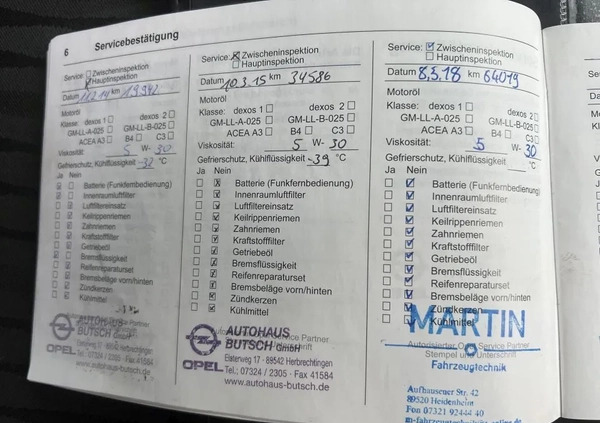 6 Servicebestätigung
Service: Zwischeninspektion
Hauptinspektion
Datum km 19942
Motoröl
Klasse: dexos 1 dexos 2
GM-LL-A-025 GM-LL-B-025
ACEA A3 B4 C3
Viskosität: 5 W- 30
Gefrierschutz, Kühlflüssigkeit -32 °C
Ja Nein
Batterie (Funkfernbedienung)
Innenraumluftfilter
Luftfiltereinsatz
Keilrippenriemen
Zahnriemen
Kraftstofffilter
Getriebeöl
Bremsflüssigkeit
Reifenreparaturset
Bremsbeläge vorn/hinten
Zündkerzen
Kühlmittel
AUTOHAUS
BUTSCH GmbH
OPEL
Eisterweg 17 - 89542 Herbrechtingen
Tel.: 07324 / 2305 - Fax 41584
www.autohaus-butsch.de
Service: Zwischeninspektion
Hauptinspektion
Datum 10.3.15 km 34586
Motoröl
Klasse: dexos 1 dexos 2
GM-LL-A-025 GM-LL-B-025
ACEA A3 B4 C3
Viskosität: 5 W- 30
Gefrierschutz, Kühlflüssigkeit -39 °C
Ja Nein
Batterie (Funkfernbedienung)
Innenraumluftfilter
Luftfiltereinsatz
Keilrippenriemen
Zahnriemen
Kraftstofffilter
Getriebeöl
Bremsflüssigkeit
Reifenreparaturset
Bremsbeläge vorn/hinten
Zündkerzen
Kühlmittel
AUTOHAUS
BUTSCH GmbH
Service Partner
OPEL
Eisterweg 17 - 89542 Herbrechtingen
Tel.: 07324 / 2305 - Fax 41584
www.autohaus-butsch.de
Service: Zwischeninspektion
Hauptinspektion
Datum 8.5.18 km 64079
Motoröl
Klasse: dexos 1 dexos 2
GM-LL-A-025 GM-LL-B-025
ACEA A3 B4 C3
Viskosität: 5 W- 30
Gefrierschutz, Kühlflüssigkeit °C
Ja Nein
Batterie (Funkfernbedienung)
Innenraumluftfilter
Luftfiltereinsatz
Keilrippenriemen
Zahnriemen
Kraftstofffilter
Getriebeöl
Bremsflüssigkeit
Reifenreparaturset
Bremsbeläge vorn/hinten
Zündkerzen
Kühlmittel
MARTIN
Autorisierter Opel Service Partner
Stempel und Unterschrift
Fahrzeugtechnik
Aufhausener Str. 42
89520 Heidenheim
Fon 07321 92444 40